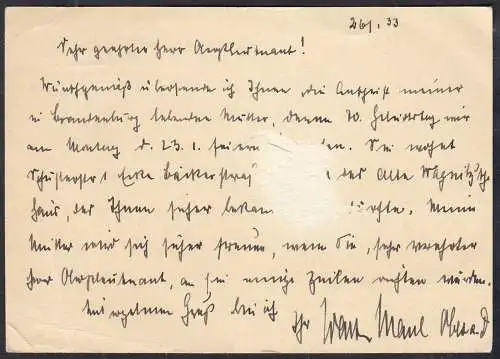 26/1. 33
Sehr geehrter Herr Oberstleutnant!
Wunschgemäß übersende ich Ihnen die Anschrift meiner
in Brandenburg lebenden Mutter, deren 70. Geburtstag wir
am Montag d. 23.1. feiern Sie wohnt
Ecke Bäckerstraß das alte
Haus, das Ihnen sicher bekan dürfte. Meine
Mutter wird sich sicher freuen, wenn Sie, sehr verehrter
Herr Oberstleutnant, an sie einige Zeilen richten würden.
Mit Gruß bin ich
Ihr